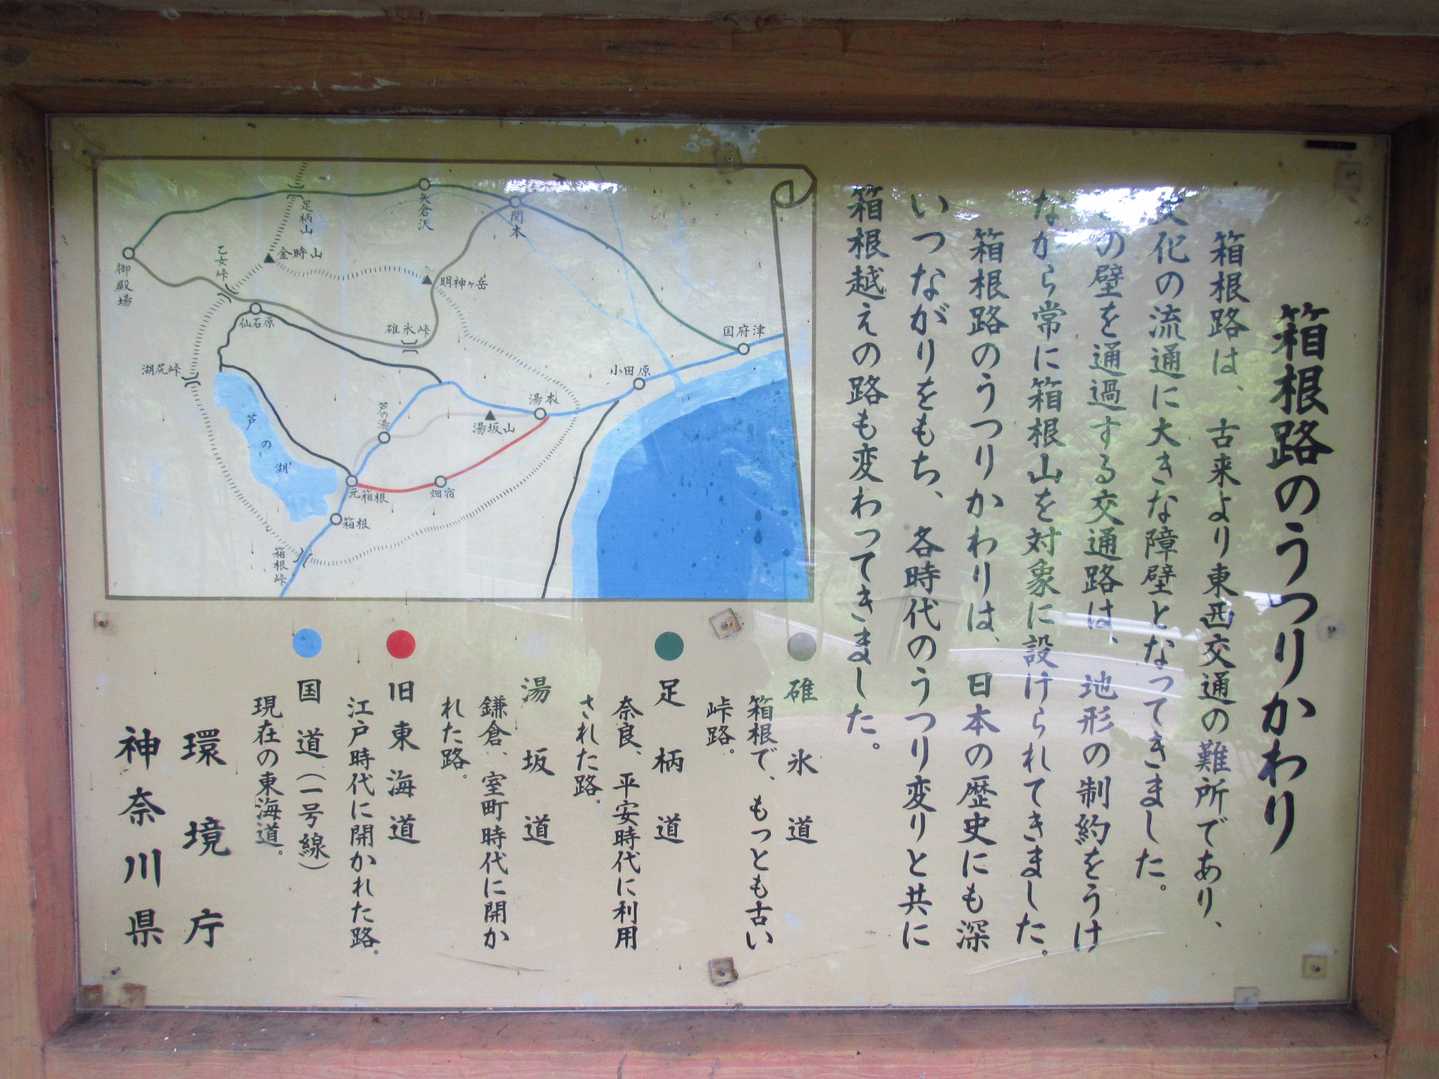 箱根路のうつりかわり
箱根路は、古来より東西交通の難所であり、
文化の流通に大きな障壁となってきました。
の壁を通過する交通路は、地形の制約をうけ
ながら常に箱根山を対象に設けられてきました。
箱根路のうつりかわりは、日本の歴史にも深
いつながりをもち、各時代のうつり変りと共に
箱根越えの路も変わってきました。
碓氷道
箱根で、もっとも古い
峠路。
足柄道
奈良、平安時代に利用
された路。
湯坂道
鎌倉、室町時代に開か
れた路。
旧東海道
江戸時代に開かれた路。
国道(一号線)
現在の東海道。
環境庁
神奈川県
足柄山
矢倉沢
関本
御殿場
乙女峠
金時山
明神ヶ岳
仙石原
碓氷峠
国府津
湖尻峠
小田原
芦の湖
芦の湯
湯本
湯坂山
元箱根
畑宿
箱根
箱根峠